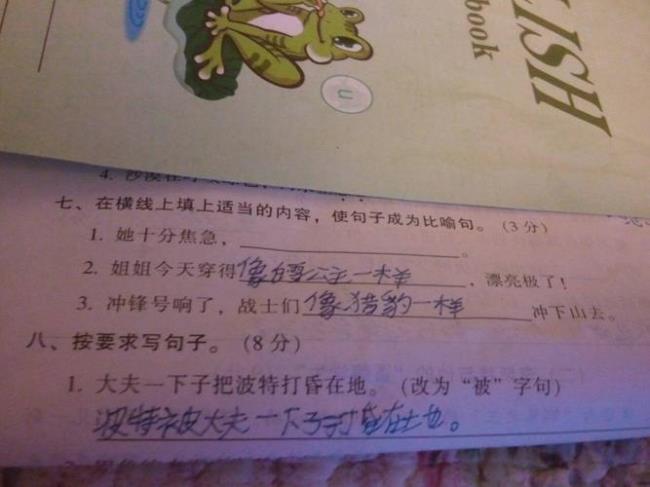 LISH
book
n
七、在横线上填上适当的内容，使句子成为比喻句。（3分）
1. 她十分焦急，____________。
2. 姐姐今天穿得像白雪公主一样，漂亮极了！
3. 冲锋号响了，战士们像猎豹一样冲下山去。
八、按要求写句子。（8分）
1. 大夫一下子把波特打昏在地。（改为“被”字句）
波特被大夫一下子打昏在地。